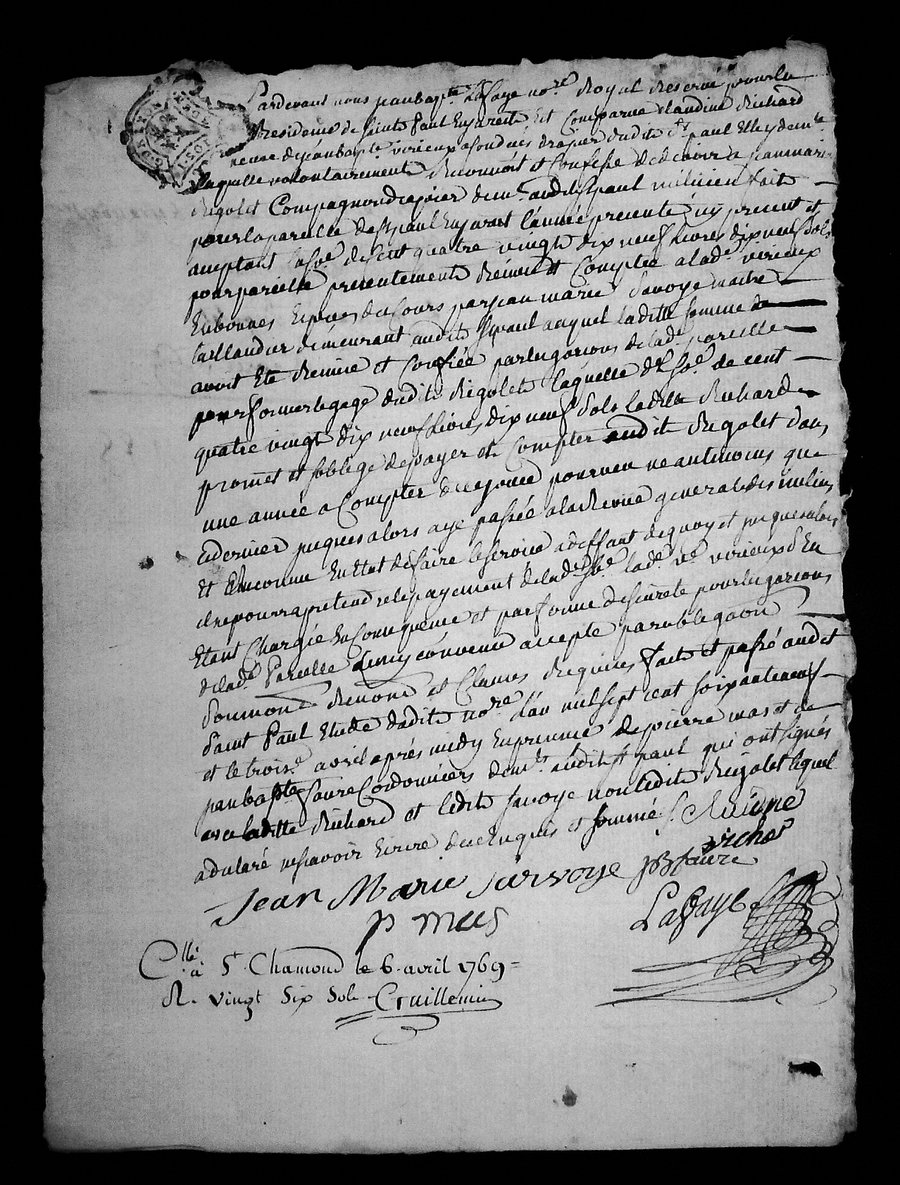 Pardevant nous jean bapte. Lafaye nore. Royal Reservé pour la
Residence de saint Paul En jarest Est Comparue Claudine Richard
veuve de jean bapte. virieux a son vivant drapier dudit st. paul Elle y demte.
Laquelle volontairement Reconnoit et Confesse de devoir a jean marie
Rigolet Compagnon drapier demt. audit st paul milicien fait
pour la parcelle de st paul En jarest l'année presente icy present et
acceptant la se. de cent quatre vingt dix neuf livres dix neuf sols
pour pareille presentement Remise et Comptée a lade. virieux
En bonnes Especes de Cours par jean marie Savoye maitre
taillandier demeurant audit st paul auquel laditte somme
avoit Eté Remise et Confiée par les garçons de lade. parcelle
pour former le gage dudit Rigolet laquelle de. se. de cent
quatre vingt dix neuf livres dix neuf sols laditte Richard
promet et s'oblige de payer et Compter audit Rigolet dans
une année a Compter de ce jour pourveu neantmoins que
ce dernier jusques alors aye passée a la Revüe generale des milices
Et Encorre En Etat de faire le service a deffaut de quoy et jusques alors
il ne pourra pretendre le payement de lade. se. lade. ve. virieux d'En
Etant Chargée En Consequence et par forme de sureté pour les garçons
de lade. Parcelle ainsy convenu accepté par obligaon.
soumons. Renons. et Clauses Requises fait et passé audit
saint Paul Etude dudit nore. L'an mil sept cent soixante neuf
et le troise. avril après midy En presence de pierre mas et de
jean bapte. faure Cordonniers demts. audit st paul qui ont signés
avec laditte Richard et ledit Savoye non ledit Rigolet lequel
a declaré ne sçavoir Ecrire de ce Enquis et sommé
Jean Marie Sarvoye jB faure richar
p mas
Lafaye
Cllé. à St. Chamond le 6. avril 1769
R. vingt Six Sols Guillemin